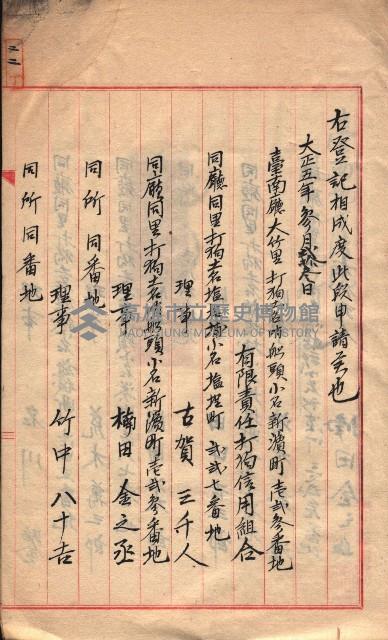 右登記相成度此段申請候也
大正五年參月貳拾日
臺南廳大竹里打狗土名哨船頭小名新濱町壱貳參番地
有限責任打狗信用組合
同廳同里打狗土名塩埕小名塩埕町貳貳七番地
理事 古賀三千人
同廳同里打狗土名哨船頭小名新濱町壱貳參番地
理事 楠田金之丞
同所同番地
理事 竹中八十吉
同所同番地
高雄市立歷史博物館
KAOHSIUNG MUSEUM OF HISTORY